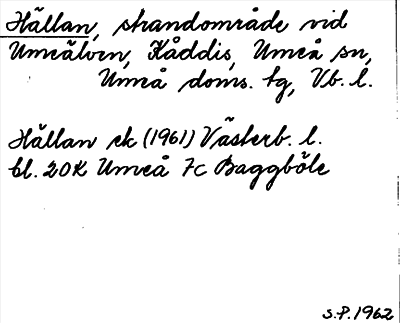 Hällan, strandområde vid
Umeälven, Kåddis, Umeå sn,
Umeå doms. tg, Vb. l.
Hällan ek (1961) Västerb. l.
bl. 20K Umeå 7c Baggböle
S.P. 1962